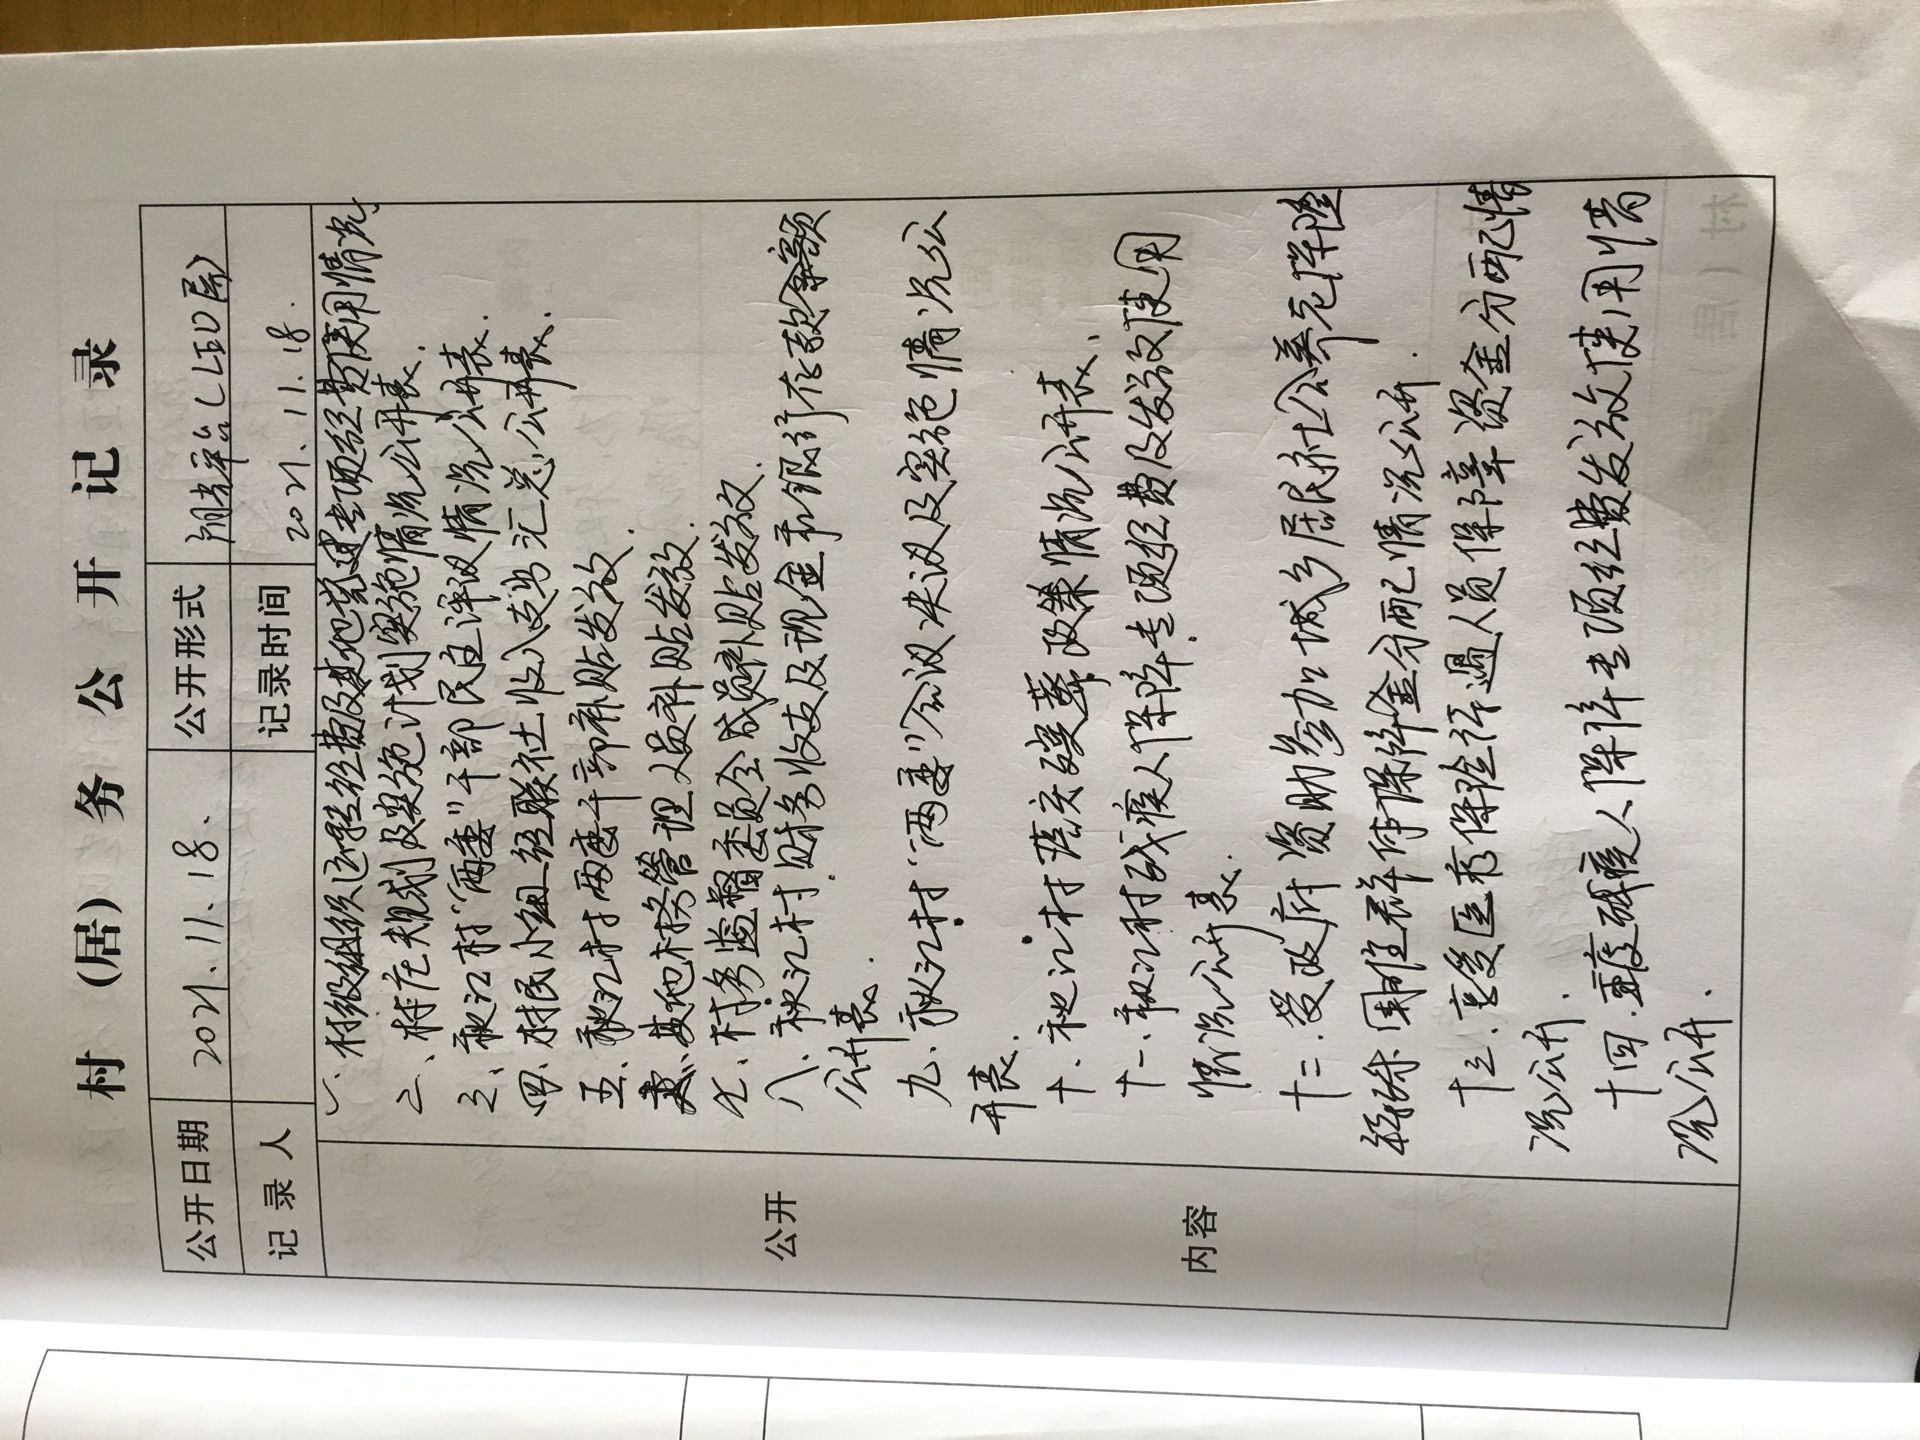 村（居）务公开记录
公开日期 2021.11.18. 公开形式 阳光平台（LED屏）
记录人 记录时间 2021.11.18.
公开内容
一、村级组织运转经费及其他党建专项经费使用情况
二、村庄规划及实施计划实施情况公开表.
三、秋江村“两委”干部民主评议情况公开表.
四、村民小组经联社收入支出汇总公开表.
五、秋江村两委干部补贴发放.
六、其他村务管理人员补贴发放.
七、村务监督委员会成员补贴发放.
八、秋江村财务收支及现金和银行存款余额
公开表.
九、秋江村“两委”会议决议及实施情况公
开表.
十、秋江村落实殡葬政策情况公开表.
十一、秋江村残疾人保障专项经费及发放使用
情况公开表.
十二、受政府资助参加城乡居民社会养老保险
特殊困难群体保障金分配情况公开.
十三、享受医疗保险待遇人员保障资金分配情
况公开.
十四、重度残疾人保障专项经费发放使用情
况公开.